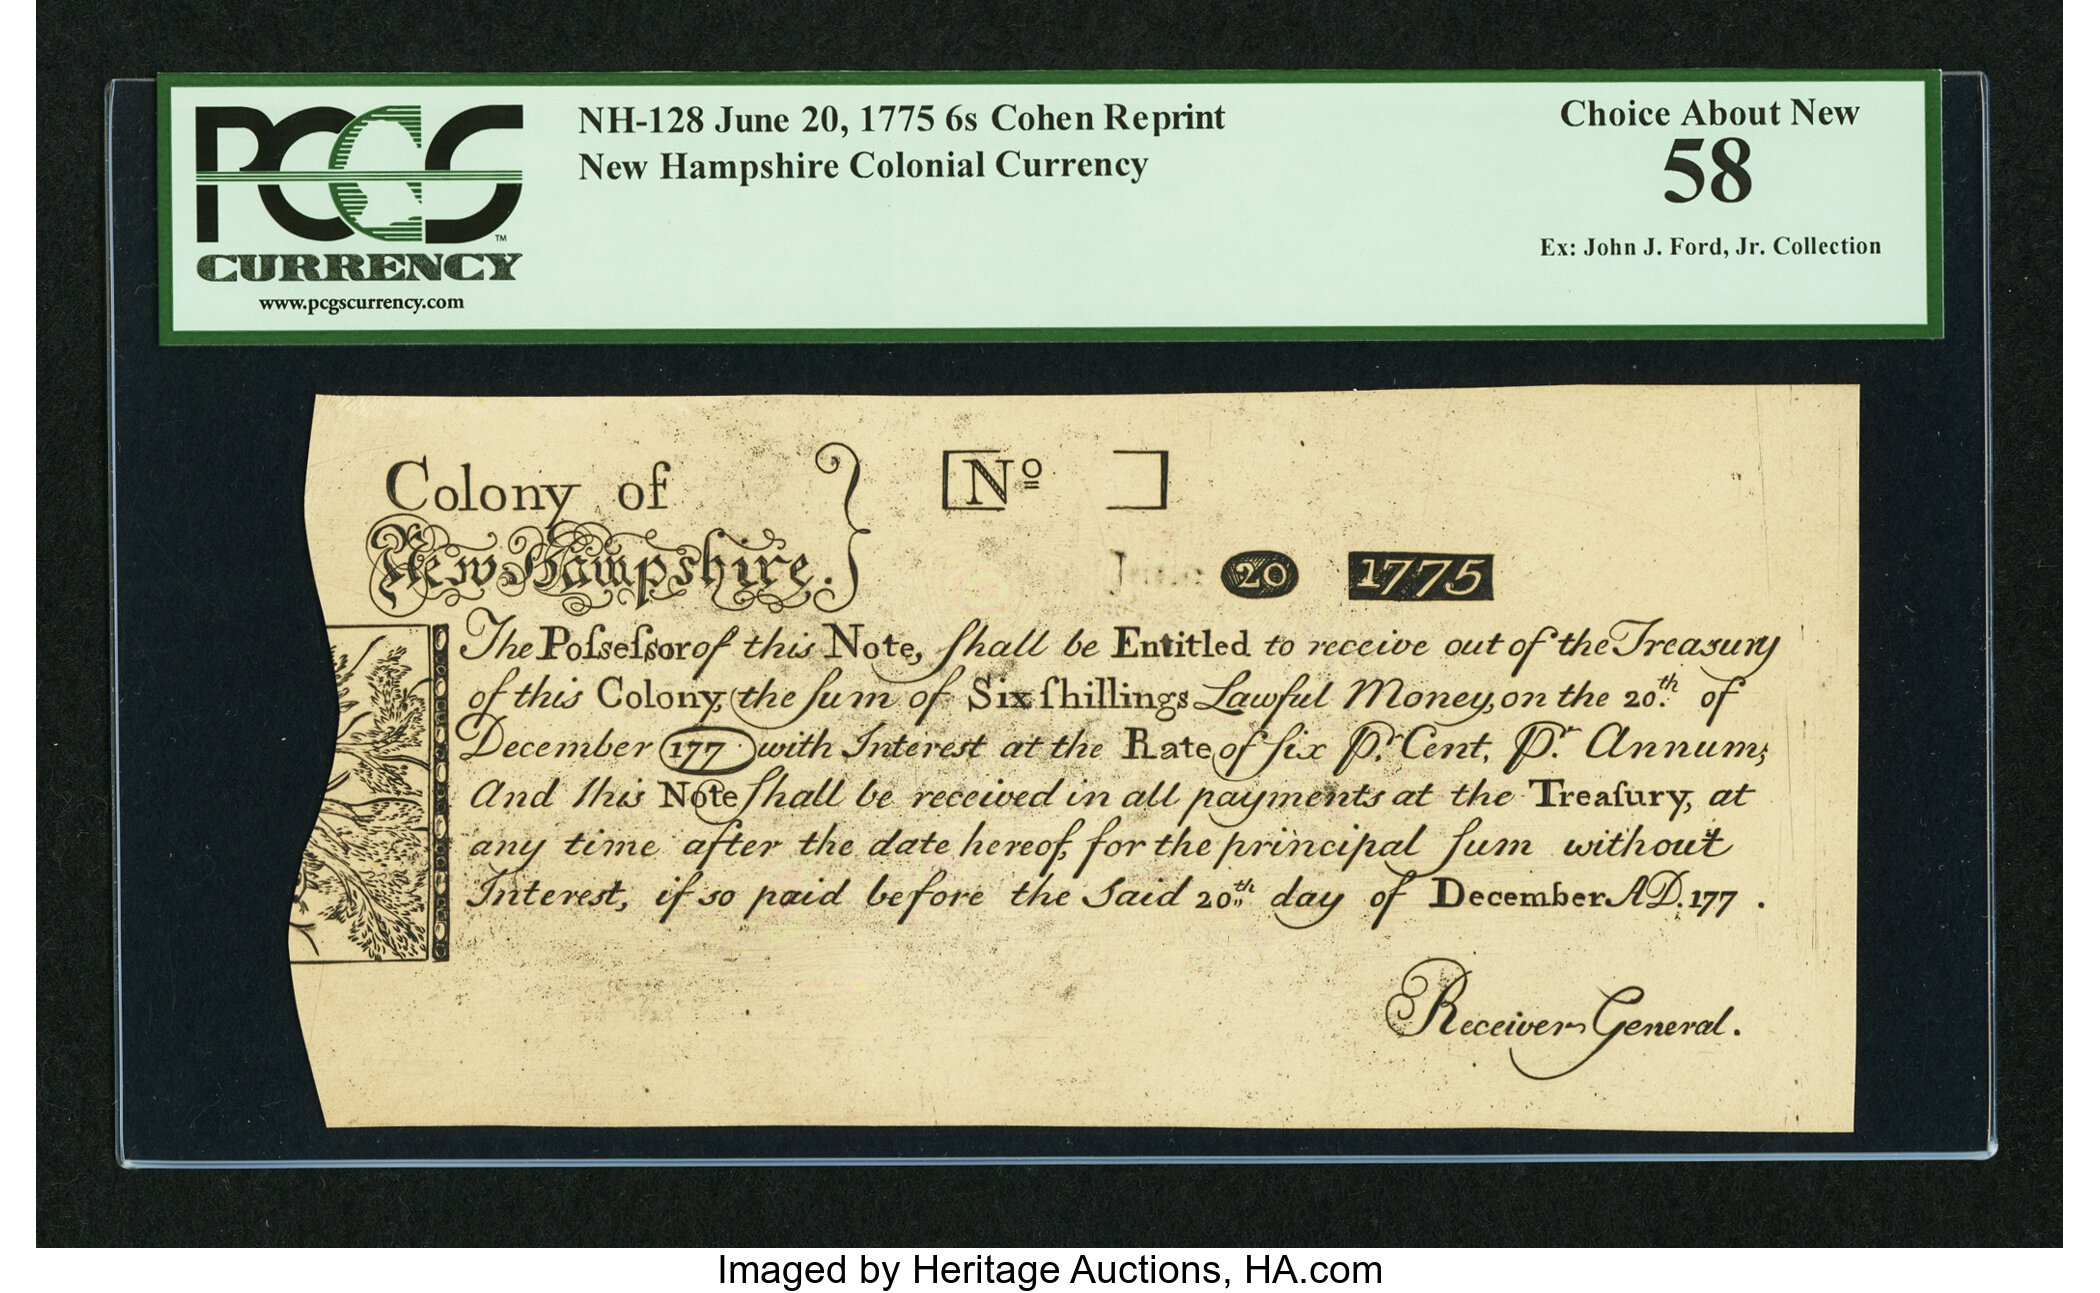 PCGS™
CURRENCY
www.pcgscurrency.com
NH-128 June 20, 1775 6s Cohen Reprint
New Hampshire Colonial Currency
Choice About New
58
Ex: John J. Ford, Jr. Collection
Colony of
New Hampshire.
Nº
20 1775
The Poſseſsor of this Note, ſhall be Entitled to receive out of the Treasury
of this Colony, the ſum of Six ſhillings Lawful Money, on the 20th. of
December 177 with Interest at the Rate of ſix Pr. Cent, Pr. Annum;
And this Note ſhall be received in all payments at the Treaſury, at
any time after the date hereof, for the principal ſum without
Interest, if so paid before the Said 20th. day of December A D. 177 .
Receiver General.
Imaged by Heritage Auctions, HA.com